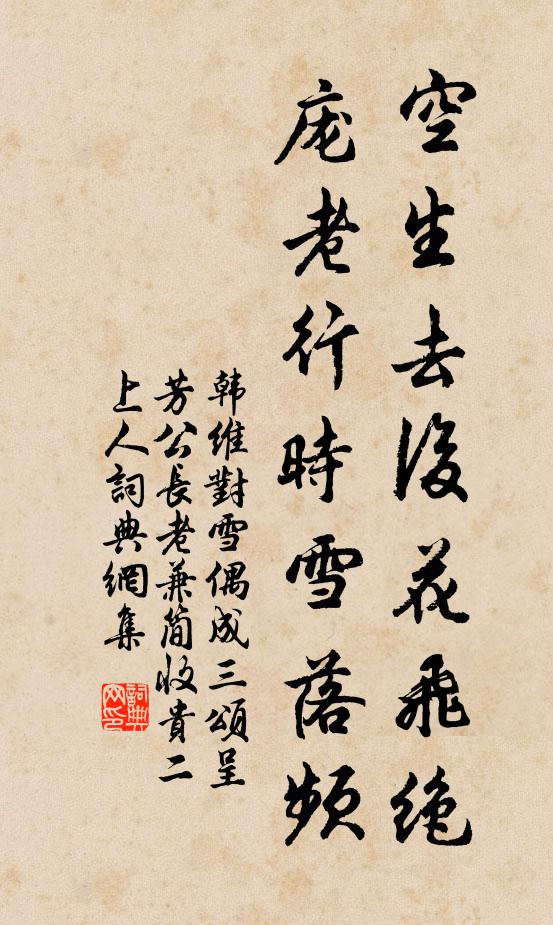 空生去後花飛絶
庞老行時雪落頻
韩維對雪偶成三頌呈
芳公長老兼简收貴二
上人詞典網集
詞典網印